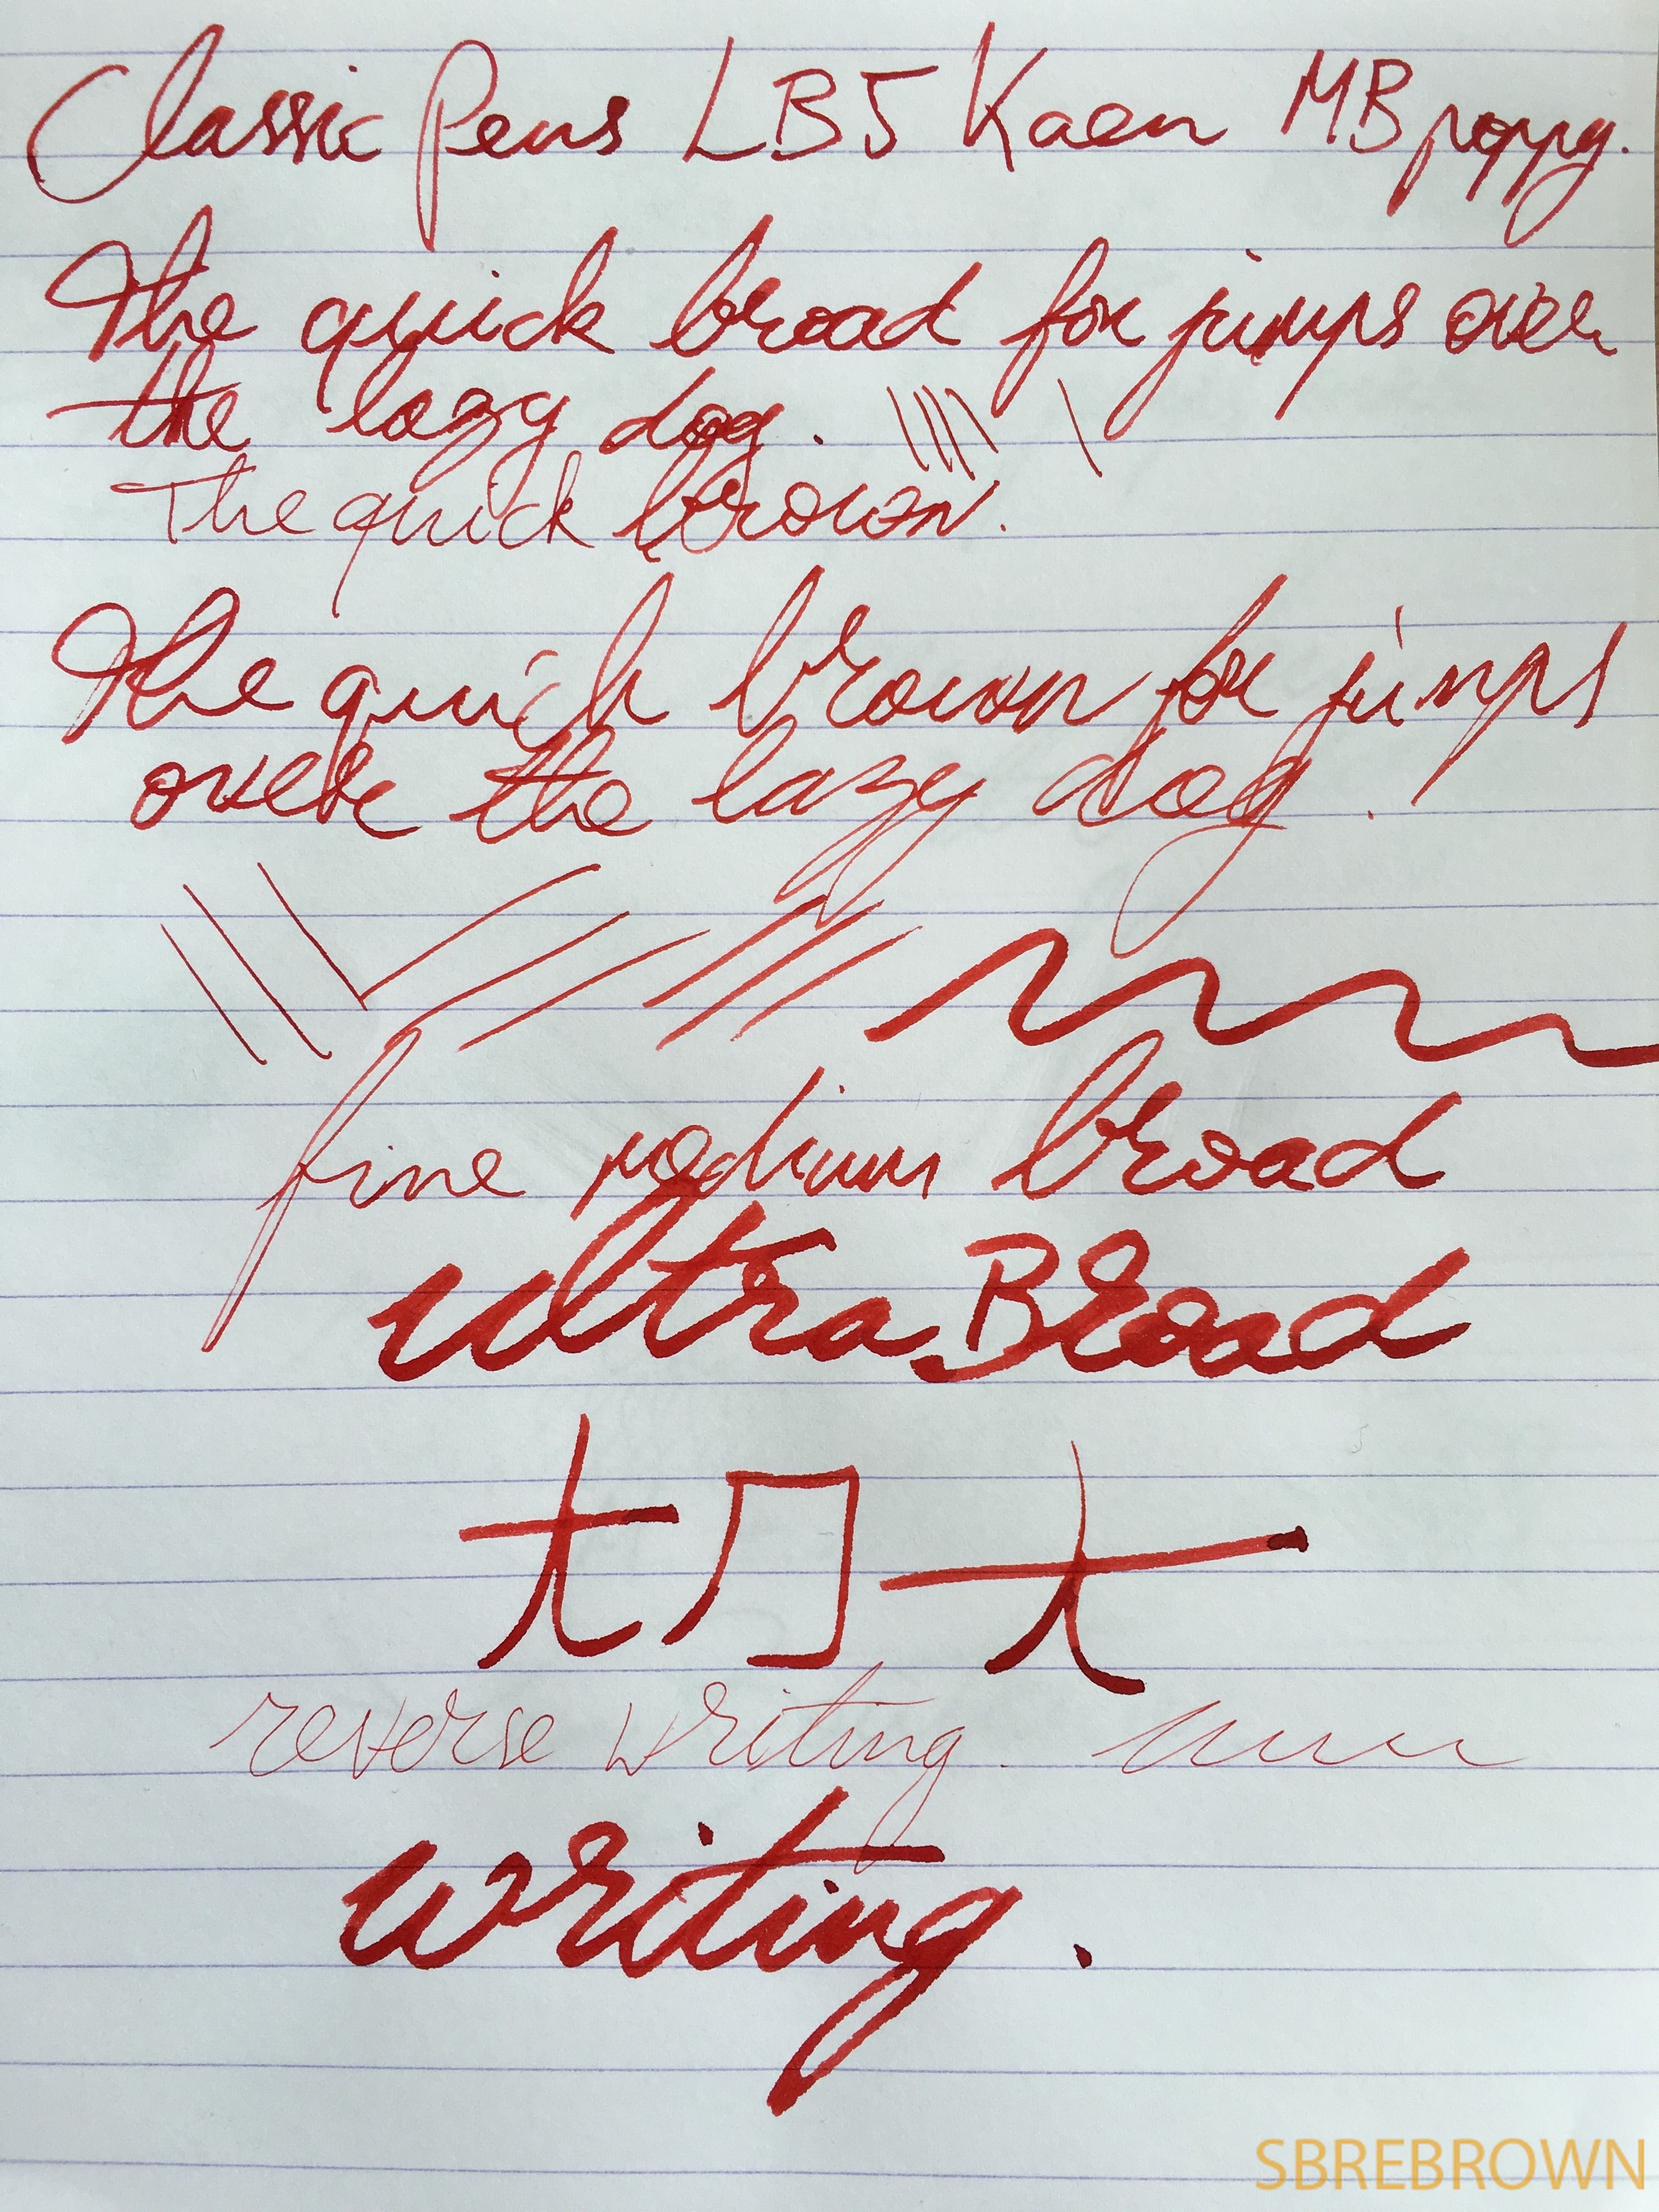 Classic Pens LB5 Kaen MB poppy.
The quick broad fox jumps over
the lazy dog.
The quick brown.
The quick brown fox jumps
over the lazy dog.
fine medium broad
ultra Broad
reverse writing.
writing.
SBREBROWN